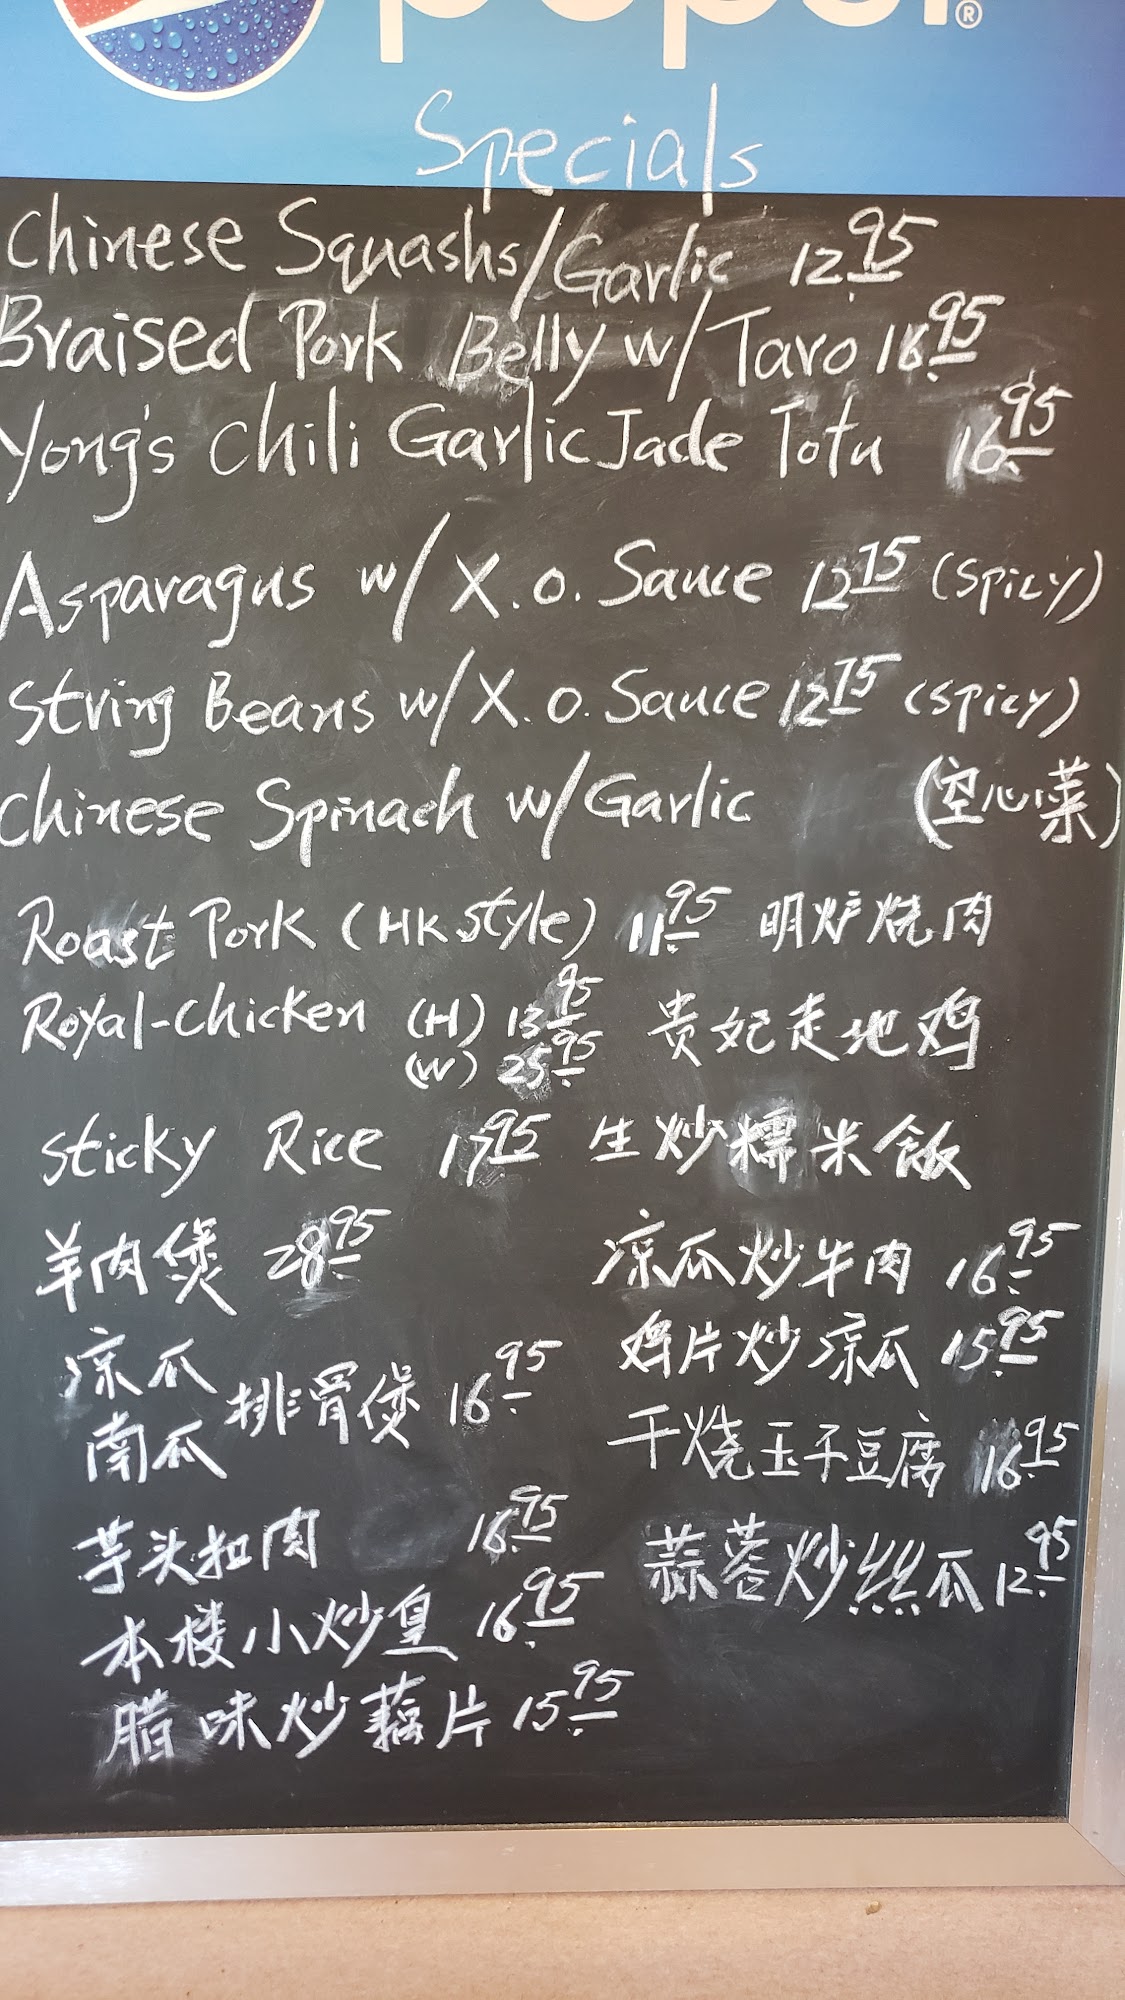 pepsi®
Specials
Chinese Squashs/Garlic 12.95
Braised Pork Belly w/Taro 16.95
Yong's Chili Garlic Jade Tofu 16.95
Asparagus w/ X.O. Sauce 12.75 (Spicy)
String Beans w/ X.O. Sauce 12.75 (Spicy)
Chinese Spinach w/Garlic (空心菜)
Roast Pork (HK style) 11.95 明炉烧肉
Royal-Chicken (H) 13.95 贵妃走地鸡
(W) 25.95
Sticky Rice 17.95 生炒糯米飯
羊肉煲 28.95
凉瓜炒牛肉 16.95
凉瓜
南瓜
排骨煲 16.95
鸡片炒凉瓜 15.95
干烧玉子豆腐 16.95
芋头扣肉 16.95
蒜蓉炒丝瓜 12.95
本楼小炒皇 16.95
腊味炒藕片 15.95